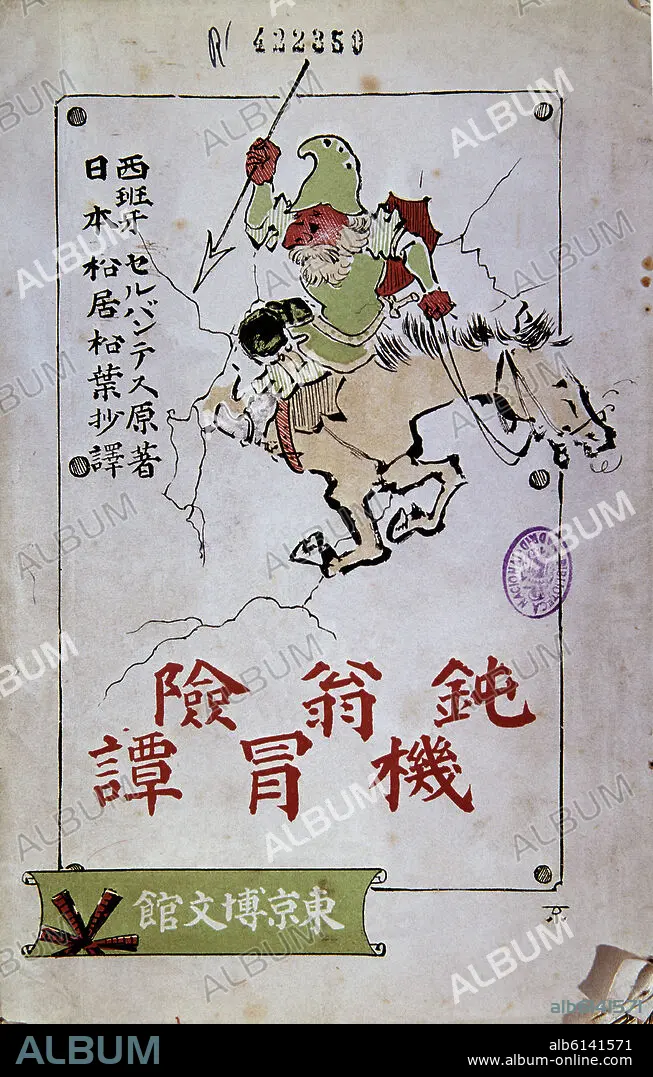 西班牙 セルバンテス原著
日本 松居松葉抄譯
鈍機翁冒險譚
東京博文館
BIBLIOTECA NACIONAL
ALBUM
alb6141571
ALBUM
alb6141571
www.album-online.com